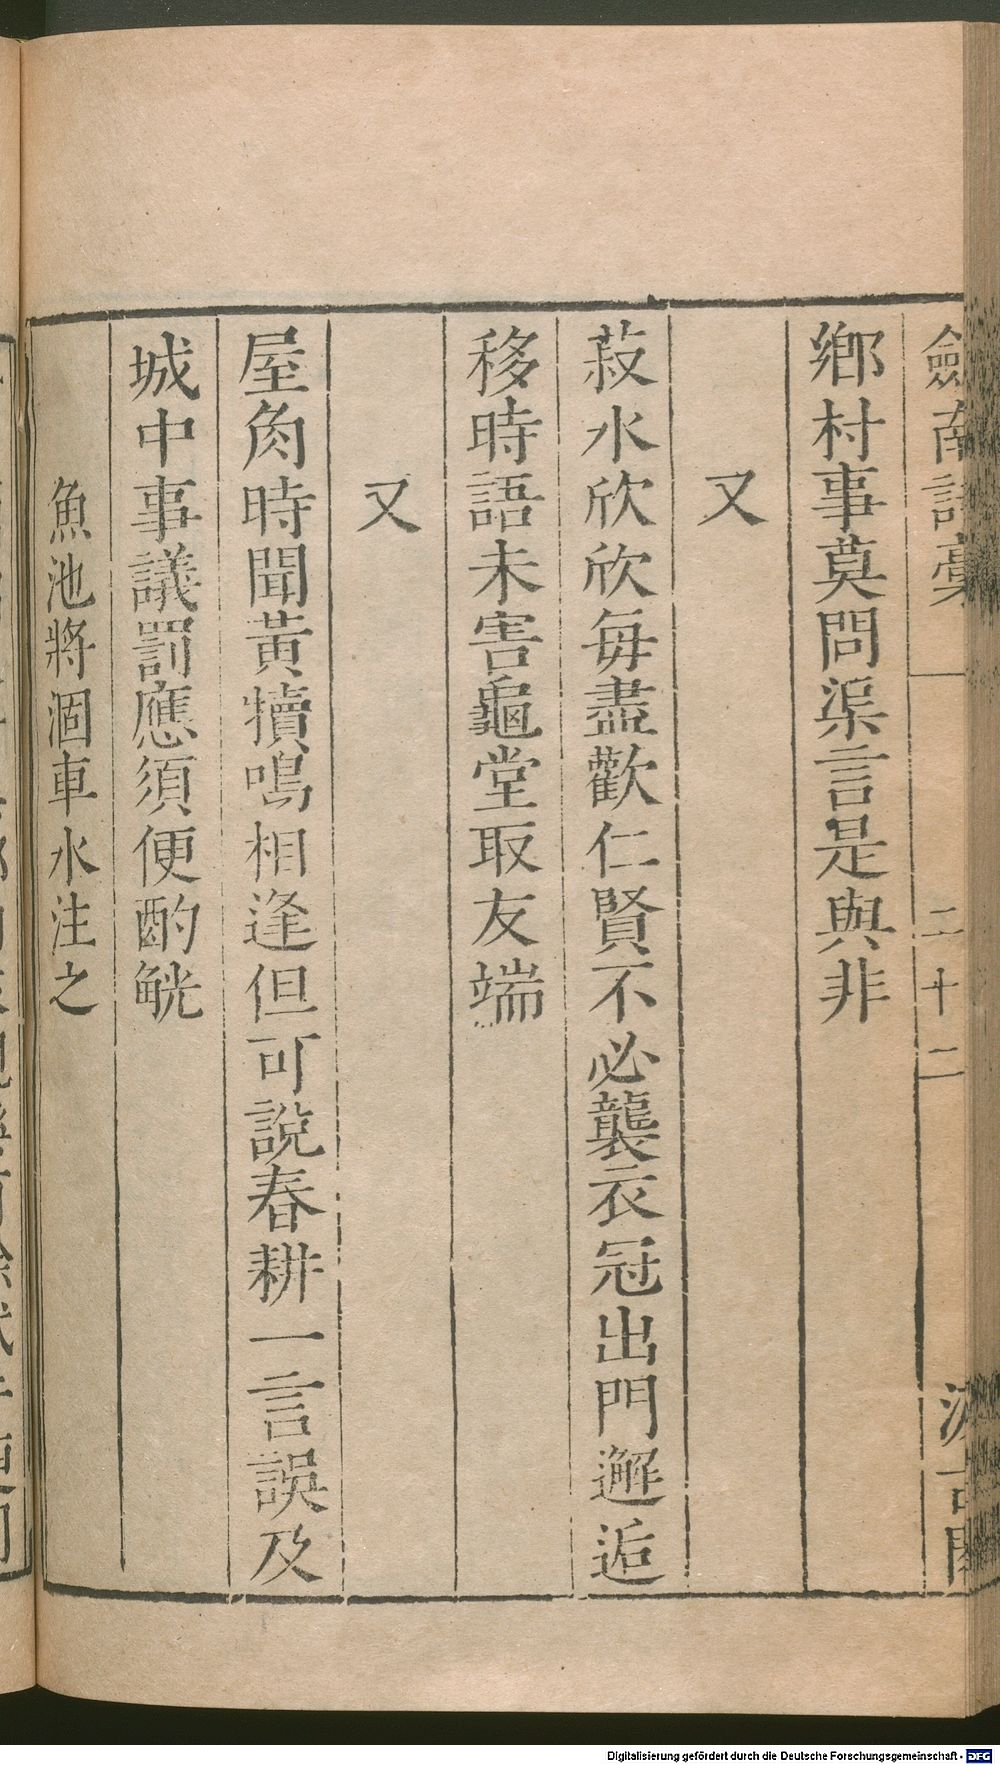 劒南詩稾 二十二 汲古閣
鄉村事莫問渠言是與非
又
菽水欣欣每盡歡仁賢不必襲衣冠出門邂逅
移時語未害龜堂取友端
又
屋角時聞黃犢鳴相逢但可說春耕一言誤及
城中事議罰應須便酌觥
魚池將涸車水注之
Digitalisierung gefördert durch die Deutsche Forschungsgemeinschaft - DFG